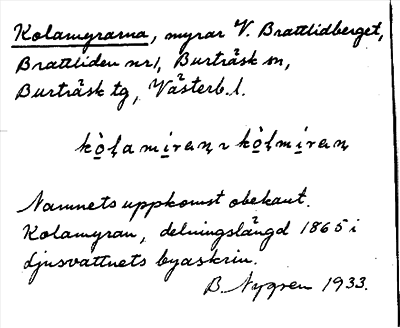 Kolamyrarna, myrar V. Brattlidberget,
Brattliden nr 1, Burträsk sn,
Burträsk tg, Västerb. l.
kò̱l̥a mi̱ran̥ ~ kò̱l̥mi̱ran̥
Namnets uppkomst obekant.
Kolamyran, delningslängd 1865 i
Ljusvattnets byaskrin.
B. Nygren 1933.